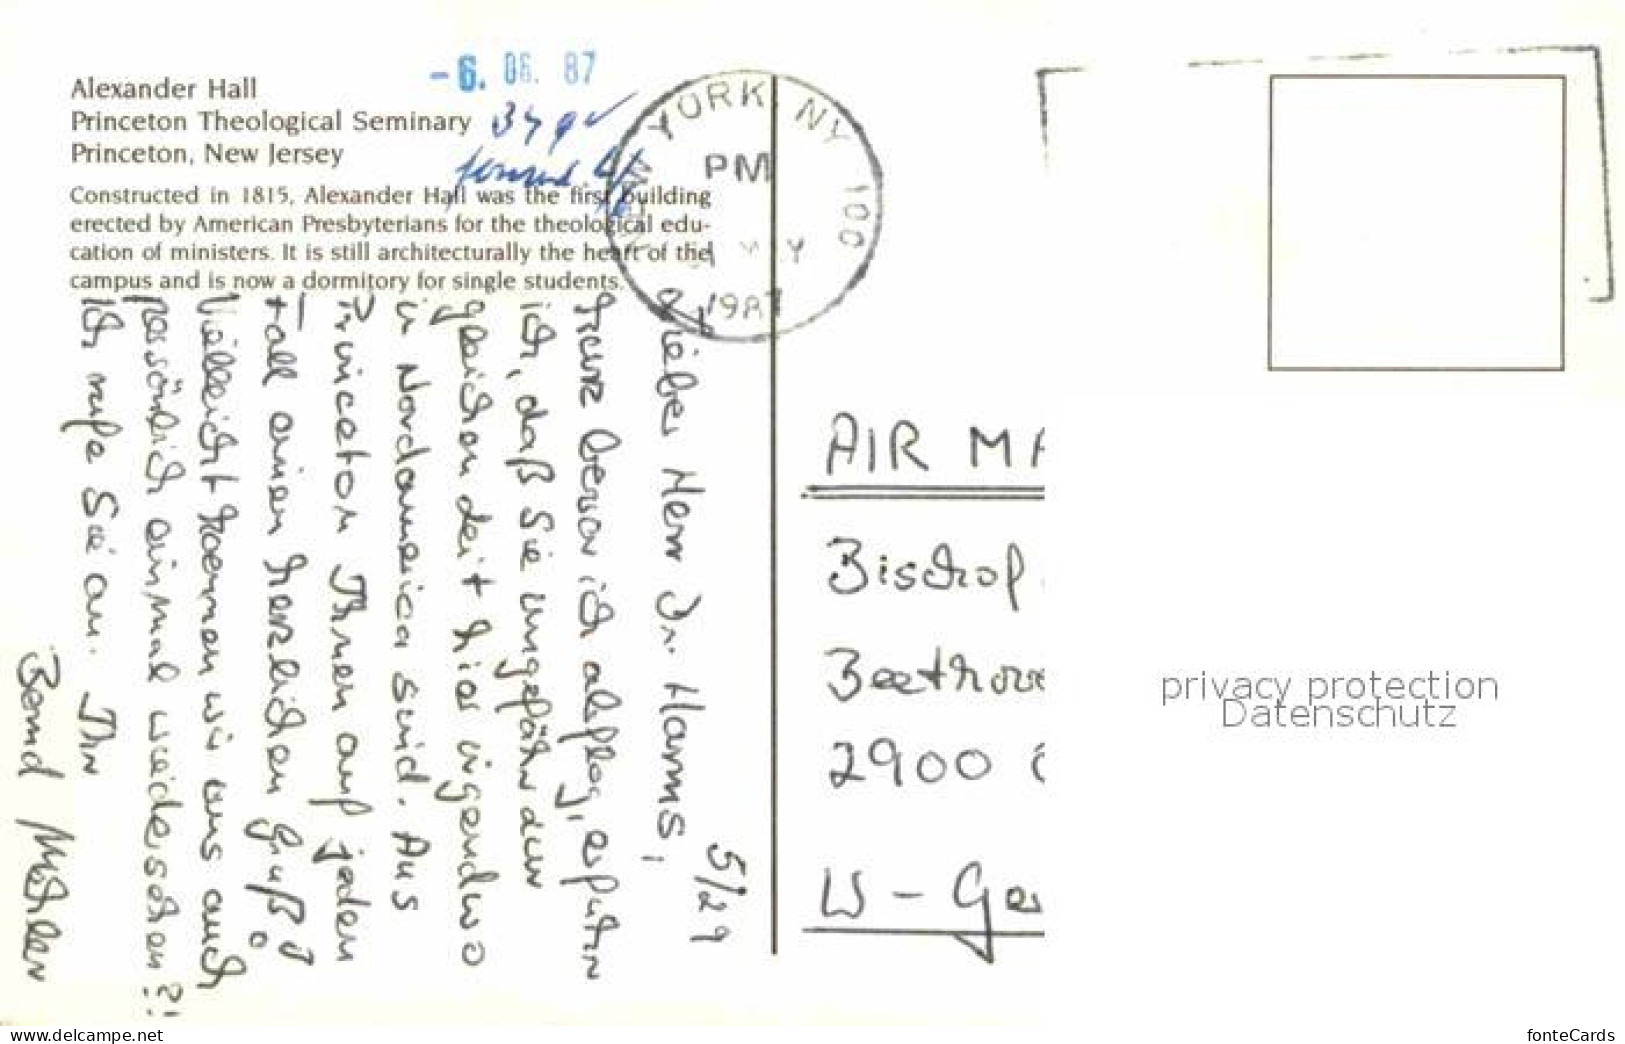 Alexander Hall
Princeton Theological Seminary
Princeton, New Jersey
Constructed in 1815, Alexander Hall was the first building
erected by American Presbyterians for the theological edu-
cation of ministers. It is still architecturally the heart of the
campus and is now a dormitory for single students.
-6. 06. 87
NEW YORK NY 100
PM
1987
5/29
Lieber Herr Dr. Harms,
kurz bevor ich abflog, erfuhr
ich, daß Sie ungefähr zur
gleichen Zeit hier irgendwo
in Nordamerica sind. Aus
Princeton Ihnen auf jeden
Fall einen herzlichen Gruß!
Vielleicht koennen wir uns auch
persönlich einmal wiedersehen?!
Ich rufe Sie an. Ihr
Bernd
AIR MA
Bischof
Beethove
2900
W - Ge
privacy protection
Datenschutz
www.delcampe.net
fonteCards